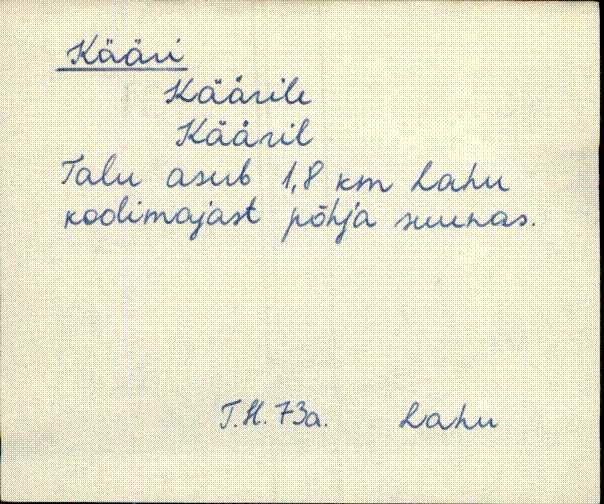 Kääri
Käärile
Kääril
Talu asub 1,8 km Lahu
koolimajast põhja suunas.
T.H. 73a. Lahu